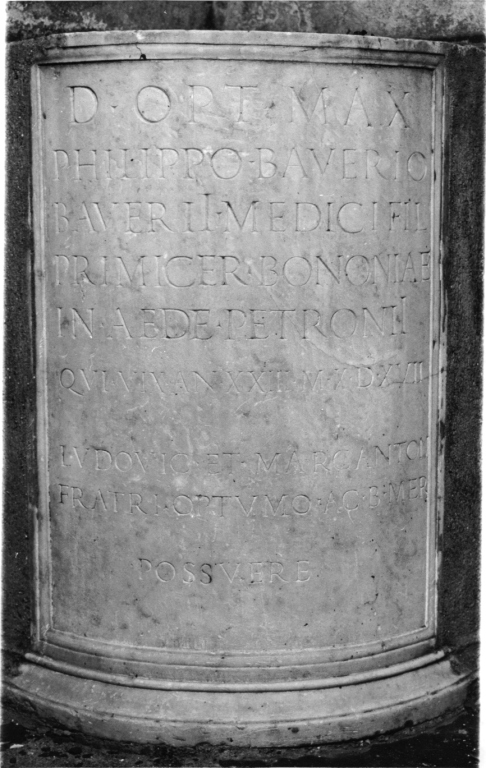 D·OPT·MAX
PHILIPPO·BAVERIO
BAVERII·MEDICI FIL
PRIMICER·BONONIAE
IN AEDE·PETRONII
QVI VIX AN XXX M X D XVII
LVDOVIC·ET·MARCANTON
FRATRI·OPTVMO·AC·B·MER
POSSVERE